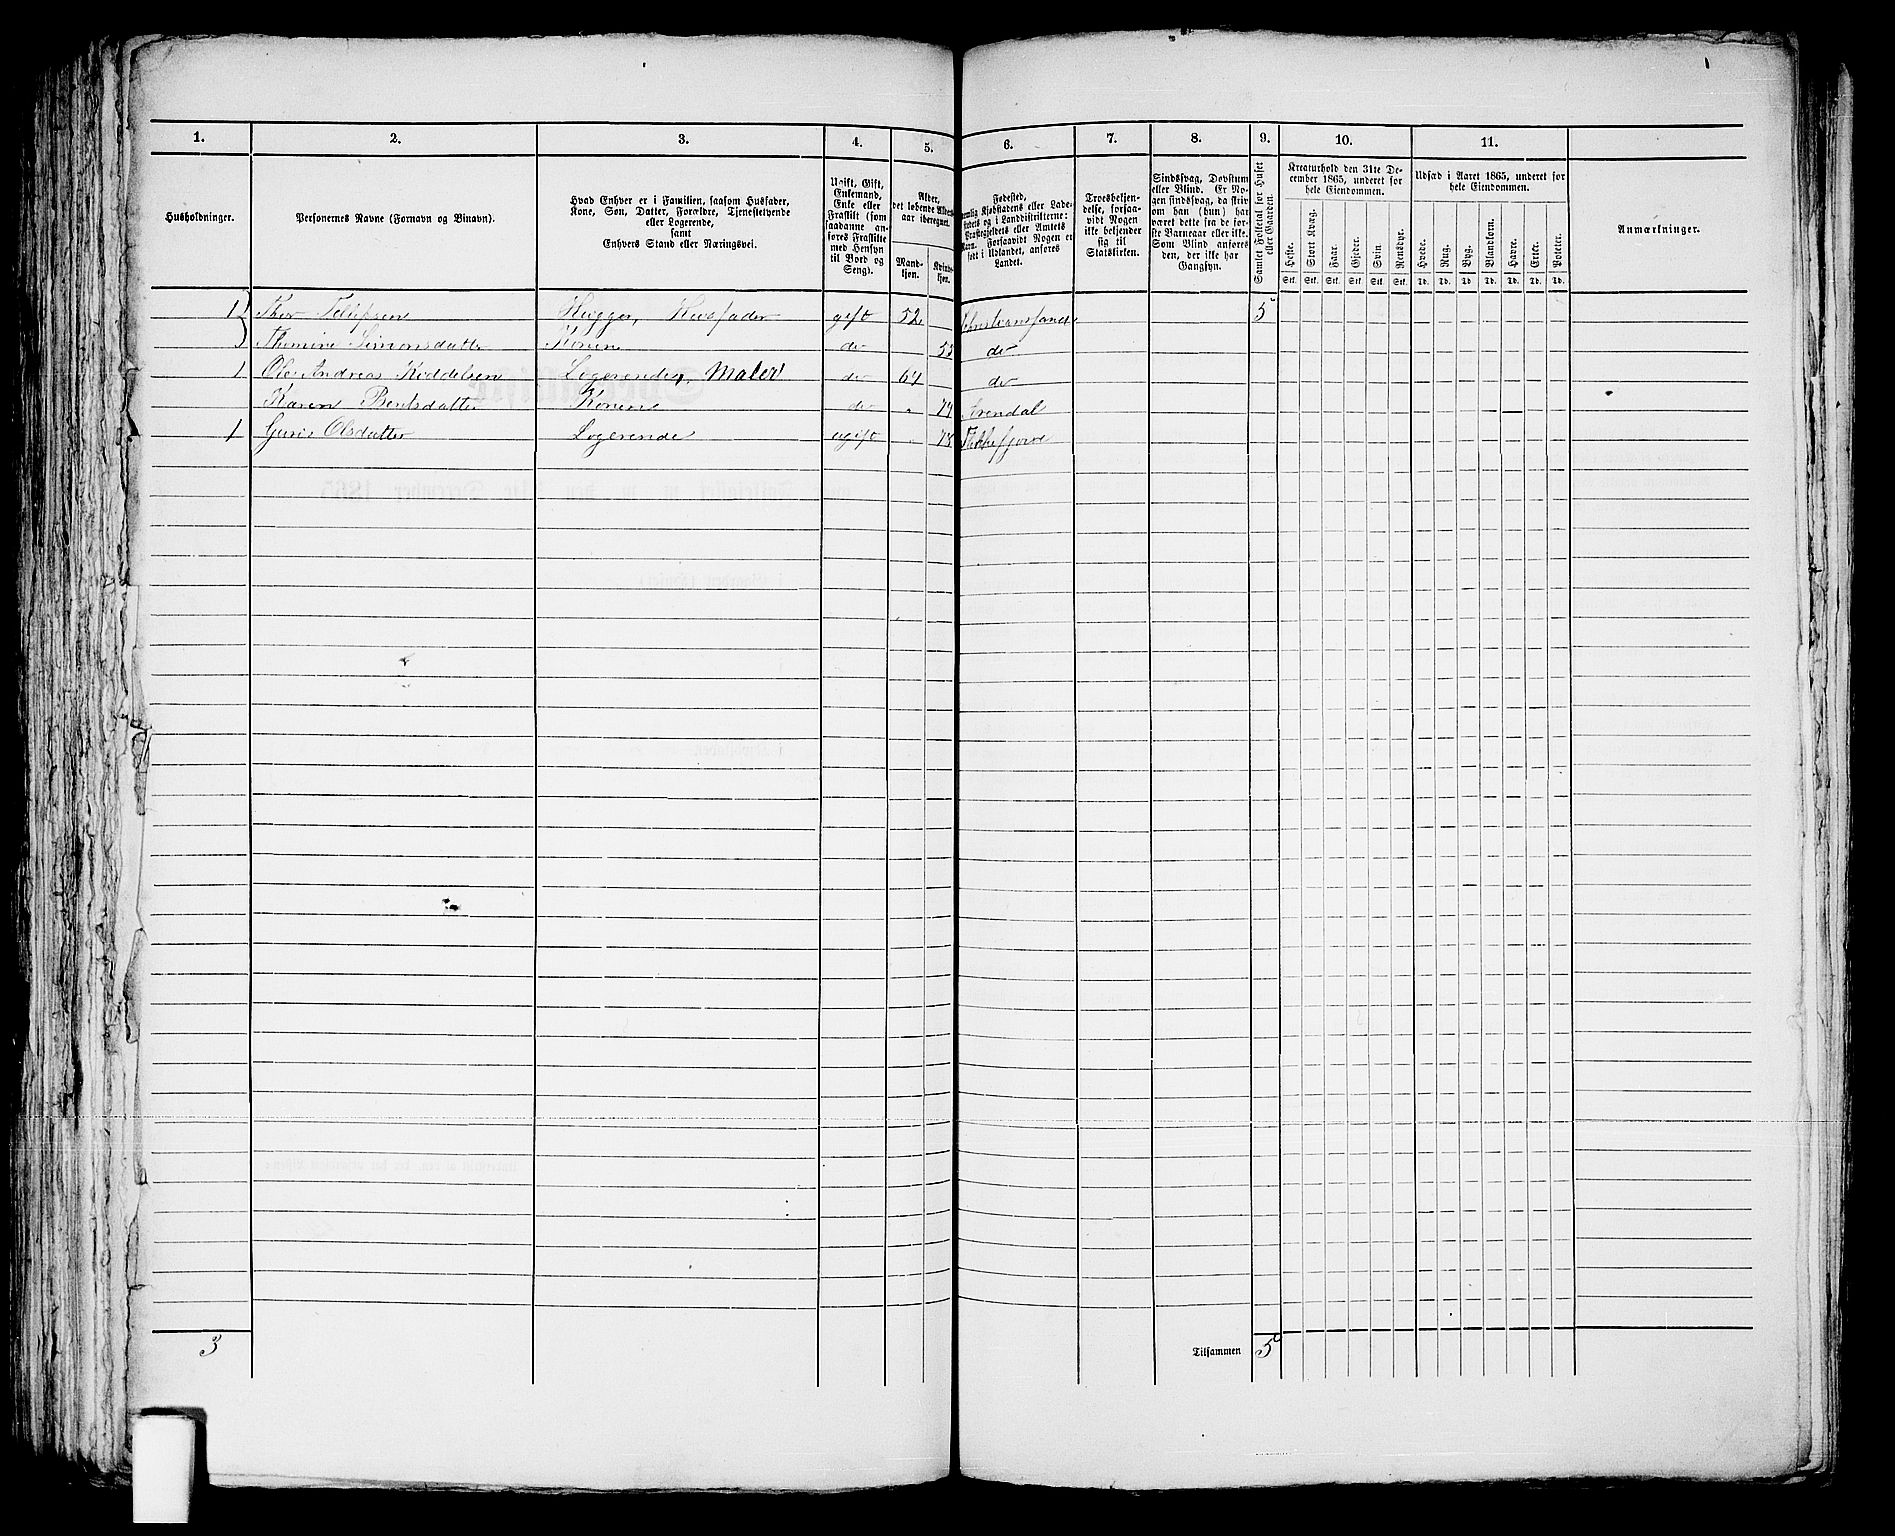 1. 2. 3. 4. 5. 6. 7. 8. 9. 10. 11.
Husholdninger.
Personernes Navne (Fornavn og Binavn).
Hvad Enhver er i Familien, saasom Husfader,
Kone, Søn, Datter, Forældre, Tjenestetyende
eller Logerende,
samt
Enhvers Stand eller Næringsvei.
Ugift, Gift,
Enkemand,
Enke eller
Fraskilt (som
saadanne an-
føres Fraskilte
med Hensyn
til Bord og
Seng).
Alder,
det løbende Alders-
aar iberegnet.
Mand-
kjøn.
Kvind-
kjøn.
Fødested,
nemlig Kjøbstadens eller Lade-
stedets og i Landdistrikterne:
Præstegjeldets eller Amtets
Navn. Forsaavidt Nogen er
født i Udlandet, anføres
Landet.
Troesbekjen-
delse, forsaa-
vidt Nogen
ikke bekjender
sig til
Statskirken.
Sindssvag, Døvstum
eller Blind. Er No-
gen sindssvag, da skriv
om han (hun) har
været dette fra de før-
ste Barneaar eller ikke.
Som Blind anføres
den, der ikke har
Gangsyn.
Samlet Folketal for Huset
eller Gaarden.
Kreaturhold den 31te De-
cember 1865, underet for
hele Eiendommen.
Heste. Stort Kvæg. Faar. Gjeder. Svin Rensdyr.
Stk. Stk. Stk. Stk. Stk. Stk.
Udsæd i Aaret 1865, underet for
hele Eiendommen.
Hvede. Rug. Byg. Blandkorn. Havre. Erter. Poteter.
Td. Td. Td. Td. Td. Td. Td.
Anmærkninger.
1 Thor Hugger, Husfader gift 52 Christianssand 5
Simonsdatter Konen do 53 do
1 Ole Andreas Kiddelsen Logerende, Maler do 64 do
Karen Bentsdatter Konen do 74 Arendal
1 Guri Olsdatter Logerende ugift 78 Flekkefjord
3 Tilsammen 5